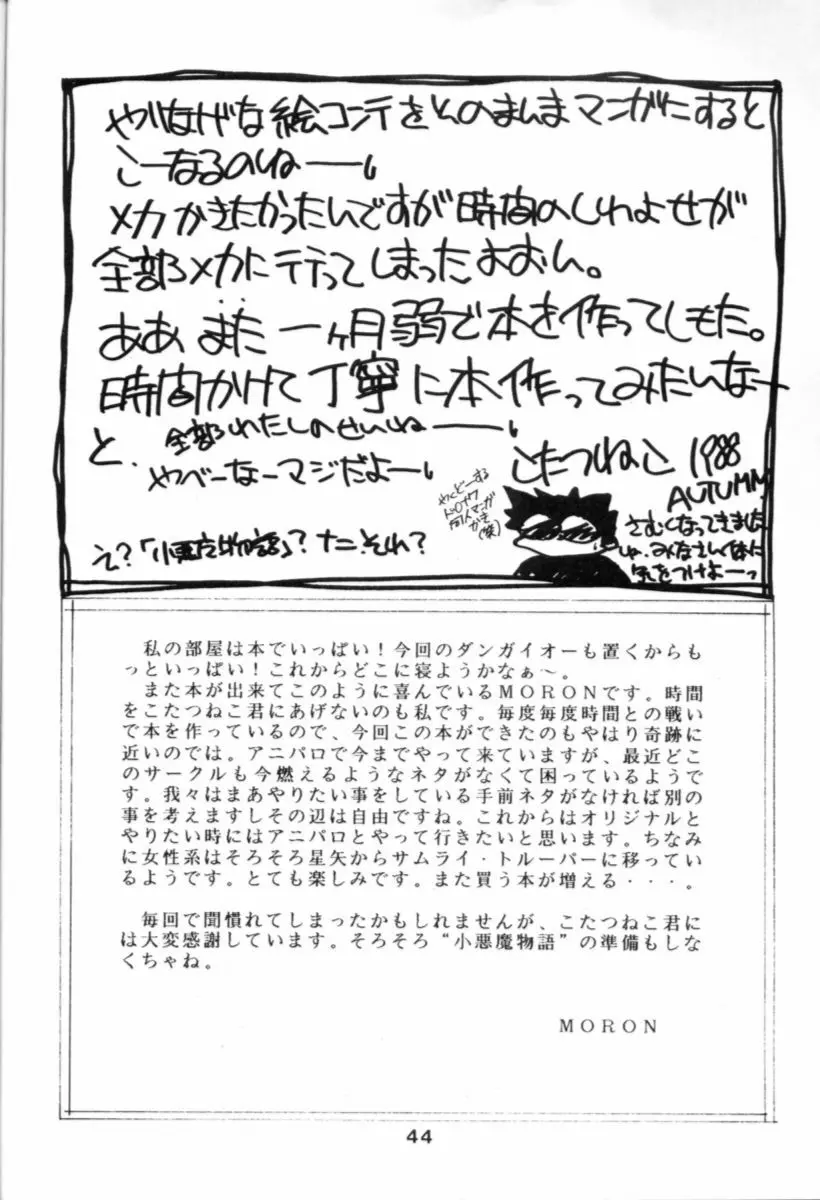 やりなげな絵コンテをそのまんまマンガにすると
こーなるのねー。
メカかきたかったんですが時間のしわよせが
全部メカに行ってしまったよおん。
ああ また 一ヶ月弱で本を作ってしもた。
時間かけて丁寧に本作ってみたいなー
と、全部わたしのせいねー。
やべーなーマジだよー。
こたつねこ 1988
AUTUMN
さむくなってきました
みなさん体に
気をつけよーっ
え?「小悪魔物語」?ナニそれ?
私の部屋は本でいっぱい!今回のダンガイオーも置くからも
っといっぱい!これからどこに寝ようかなぁ〜。
また本が出来てこのように喜んでいるMORONです。時間
をこたつねこ君にあげないのも私です。毎度毎度時間との戦い
で本を作っているので、今回この本ができたのもやはり奇跡に
近いのでは。アニパロで今までやって来ていますが、最近どこ
のサークルも今燃えるようなネタがなくて困っているようで
す。我々はまあやりたい事をしている手前ネタがなければ別の
事を考えますしその辺は自由ですね。これからはオリジナルと
やりたい時にはアニパロとやって行きたいと思います。ちなみ
に女性系はそろそろ星矢からサムライ・トルーパーに移ってい
るようです。とても楽しみです。また買う本が増える・・・。
毎回で聞慣れてしまったかもしれませんが、こたつねこ君に
は大変感謝しています。そろそろ“小悪魔物語”の準備もしな
くちゃね。
MORON
44